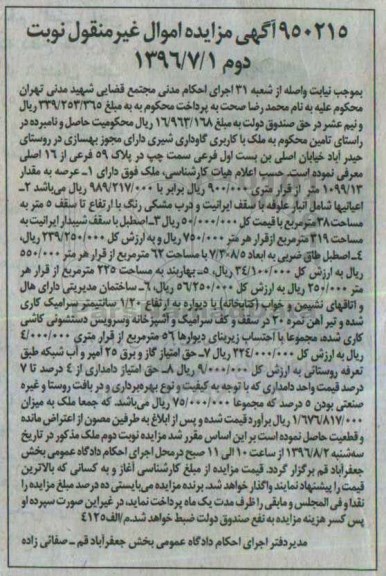 ۹۵۰۲۱۵ آگهی مزایده اموال غیر منقول نوبت
دوم ۱۳۹۶/۷/۱
بموجب نیابت واصله از شعبه ۳۱ اجرای احکام مدنی مجتمع قضایی شهید مدنی تهران
محکوم علیه به نام محمد رضا صحت به پرداخت محکوم به به مبلغ ۳۳۹/۲۵۳/۳۶۵ ریال
و نیم عشر در حق صندوق دولت به مبلغ ۱۶/۹۶۳/۱۶۸ ریال محکومیت حاصل و نامبرده در
راستای تامین محکوم به ملک با کاربری گاوداری شیری دارای مجوز بهسازی در روستای
حیدر آباد خیابان اصلی بن بست اول فرعی سمت چپ در پلاک ۵۹ فرعی از ۱۶ اصلی
معرفی نموده است. حسب اعلام هیات کارشناسی، ملک فوق دارای ۱ـ عرصه به مقدار
۱۰۹۹/۱۳ متر از قرار متری ۹۰۰/۰۰۰ ریال برابر با ۹۸۹/۲۱۷/۰۰۰ ریال می‌باشد ۲ـ
اعیانیها شامل انبار علوفه با سقف ایرانیت و درب مشکی رنگ با ارتفاع تا سقف ۵ متر به
مساحت ۳۸ مترمربع با قیمت کل ۵۰/۰۰۰/۰۰۰ ریال ۳ـ اصطبل با سقف شیبدار ایرانیت به
مساحت ۳۱۹ مترمربع از قرار هر متر ۷۵۰/۰۰۰ ریال و به ارزش کل ۲۳۹/۲۵۰/۰۰۰ ریال،
۴ـ اصطبل طاق ضربی به ابعاد ۷/۳۰*۸/۵ با مساحت ۶۲ مترمربع از قرار هر متر ۵۵۰/۰۰۰
ریال به ارزش کل ۳۴/۱۰۰/۰۰۰ ریال، ۵ـ بهاربند به مساحت ۲۲۵ مترمربع از قرار هر
متر ۲۵۰/۰۰۰ ریال به ارزش کل ۵۶/۲۵۰/۰۰۰ ریال، ۶ـ ساختمان مدیریتی دارای هال
و اتاقهای نشیمن و خواب (کتابخانه) با دیواره به ارتفاع ۱/۲۰ سانتیمتر سرامیک کاری
شده و تیر آهن نمره ۲۰ در سقف و کف سرامیک و آشپزخانه و سرویس دستشوئی کاشی
کاری شده، مجموعا با احتساب زیربنای دیوارها ۵۶ مترمربع از قرار متری ۴/۰۰۰/۰۰۰
ریال به ارزش کل ۲۲۴/۰۰۰/۰۰۰ ریال ۷ـ حق امتیاز گاز و برق ۲۵ آمپر و آب شبکه طبق
تعرفه روستائی به ارزش کل ۹/۰۰۰/۰۰۰ ریال ۸ـ حق امتیاز دامداری از ۴ درصد تا ۷
درصد قیمت واحد دامداری که با توجه به کیفیت و نوع بهره‌برداری و در بافت روستا و غیره
صنعتی بودن ۵ درصد که مجموعا ۷۵/۰۰۰/۰۰۰ ریال می‌باشد. که جمعا ملک به میزان
۱/۶۷۶/۸۱۷/۰۰۰ ریال برآورد قیمت شده و پس از ابلاغ به طرفین مصون از اعتراض مانده
و قطعیت حاصل نموده است بر این اساس مقرر شد مزایده نوبت دوم ملک مذکور در تاریخ
سه‌شنبه ۱۳۹۶/۸/۲ از ساعت ۱۰ الی ۱۱ صبح در محل اجرای احکام دادگاه عمومی بخش
جعفرآباد قم برگزار گردد. قیمت مزایده از مبلغ کارشناسی آغاز و به کسانی که بالاترین
قیمت را پیشنهاد نمایند واگذار خواهد شد. برنده مزایده می‌بایستی ده درصد مبلغ مزایده را
نقدا و فی المجلس و مابقی را ظرف مدت یک ماه پرداخت نماید، در غیر این صورت سپرده او
پس کسر هزینه مزایده به نفع صندوق دولت ضبط خواهد شد. م/الف۴۱۲۵
مدیر دفتر اجرای احکام دادگاه عمومی بخش جعفرآباد قم ـ صفائی زاده